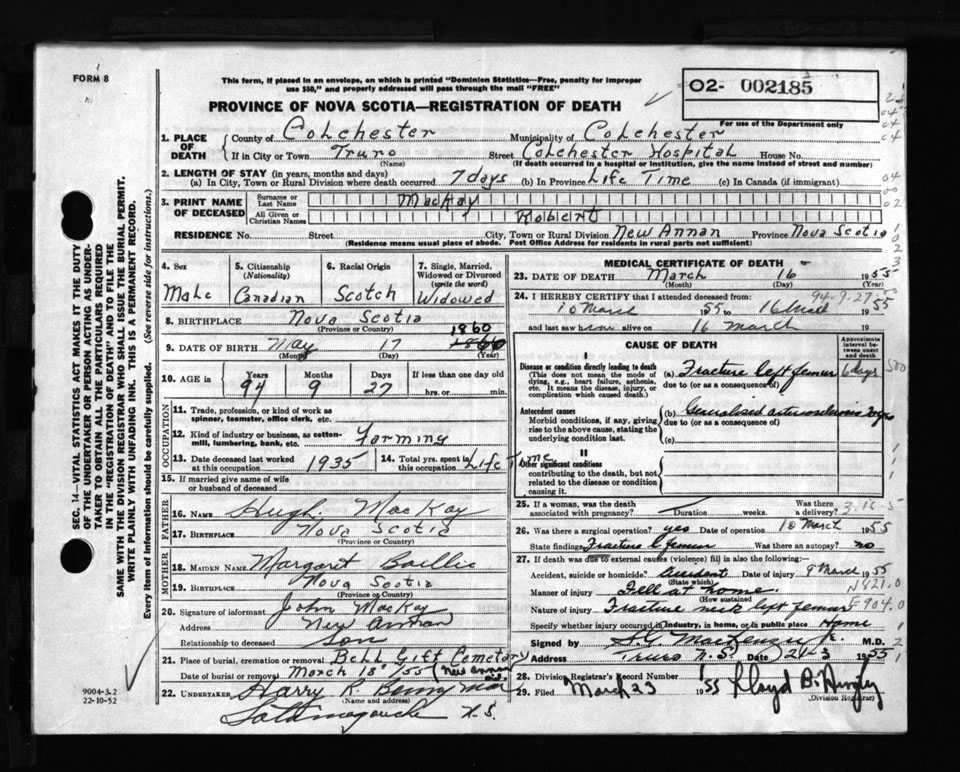 FORM 8
This form, if placed in an envelope, on which is printed "Dominion Statistics—Free, penalty for improper
use $50," and properly addressed will pass through the mail "FREE"
PROVINCE OF NOVA SCOTIA—REGISTRATION OF DEATH
O2- 002185
For use of the Department only
1. PLACE OF DEATH
County of Colchester Municipality of Colchester
If in City or Town Truro Street Colchester Hospital House No.
(Name) (If death occurred in a hospital or institution, give the name instead of street and number)
2. LENGTH OF STAY (in years, months and days)
(a) In City, Town or Rural Division where death occurred 7 days (b) In Province Life Time (c) In Canada (if immigrant)
3. PRINT NAME OF DECEASED
Surname or Last Name MacKay
All Given or Christian Names Robert
RESIDENCE No. Street City, Town or Rural Division New Annan Province Nova Scotia
(Residence means usual place of abode. Post Office Address for residents in rural parts not sufficient)
4. Sex Male
5. Citizenship (Nationality) Canadian
6. Racial Origin Scotch
7. Single, Married, Widowed or Divorced (write the word) Widowed
8. BIRTHPLACE Nova Scotia
(Province or Country)
9. DATE OF BIRTH May 17 1860
(Month) (Day) (Year)
10. AGE in Years Months Days If less than one day old
94 9 27 hrs. or min.
OCCUPATION
11. Trade, profession, or kind of work as
spinner, teamster, office clerk, etc.
12. Kind of industry or business, as cotton-
mill, lumbering, bank, etc. Farming
13. Date deceased last worked
at this occupation 1935
14. Total yrs. spent in
this occupation Life Time
15. If married give name of wife
or husband of deceased
FATHER
16. Name Hugh MacKay
17. Birthplace Nova Scotia
(Province or Country)
MOTHER
18. MAIDEN NAME Margaret Baillie
19. BIRTHPLACE Nova Scotia
(Province or Country)
20. Signature of informant John MacKay
Address New Annan
Relationship to deceased Son
21. Place of burial, cremation or removal Bell Gift Cemetery
Date of burial or removal March 18 1955 (New Annan
22. UNDERTAKER Harry K.
(Name and address)
Tatamagouche N.S.
MEDICAL CERTIFICATE OF DEATH
23. DATE OF DEATH March 16 1955
(Month) (Day) (Year)
94-9-27
24. I HEREBY CERTIFY that I attended deceased from:
10 March 1955 to 16 March 1955
and last saw alive on 16 March 19
CAUSE OF DEATH
Approximate interval between onset and death
I
Disease or condition directly leading to death
(This does not mean the mode of
dying, e.g., heart failure, asthenia,
etc. It means the disease, injury, or
complication which caused death.)
(a) Fracture left femur 6 days
due to (or as a consequence of)
Antecedent causes
Morbid conditions, if any, giving
rise to the above cause, stating the
underlying condition last.
(b) Generalised arteriosclerosis
due to (or as a consequence of)
(c)
II
Other significant conditions
contributing to the death, but not
related to the disease or condition
causing it.
25. If a woman, was the death
associated with pregnancy? Duration weeks. Was there
a delivery?
3-16-5
26. Was there a surgical operation? yes Date of operation 10 March 1955
State findings Fracture L femur Was there an autopsy? no
27. If death was due to external causes (violence) fill in also the following:—
Accident, suicide or homicide? Accident Date of injury 9 March 1955
(State which)
Manner of injury Fell at home.
(How sustained)
Nature of injury Fracture neck left femur
N821.0
E904.0
Specify whether injury occurred in Industry, in home, or in public place Home
Signed by S.G. MacKenzie M.D.
Address Truro N.S. Date 21-3 1955
28. Division Registrar's Record Number
29. Filed March 23 1955 Lloyd B.
(Division Registrar)
SEC. 14—VITAL STATISTICS ACT MAKES IT THE DUTY
OF THE UNDERTAKER OR PERSON ACTING AS UNDER-
TAKER TO OBTAIN ALL THE PARTICULARS REQUIRED
IN THE "REGISTRATION OF DEATH" AND TO FILE THE
SAME WITH THE DIVISION REGISTRAR WHO SHALL ISSUE THE BURIAL PERMIT.
WRITE PLAINLY WITH UNFADING INK. THIS IS A PERMANENT RECORD.
Every item of information should be carefully supplied. (See reverse side for instructions.)
9004-3.2
22-10-52